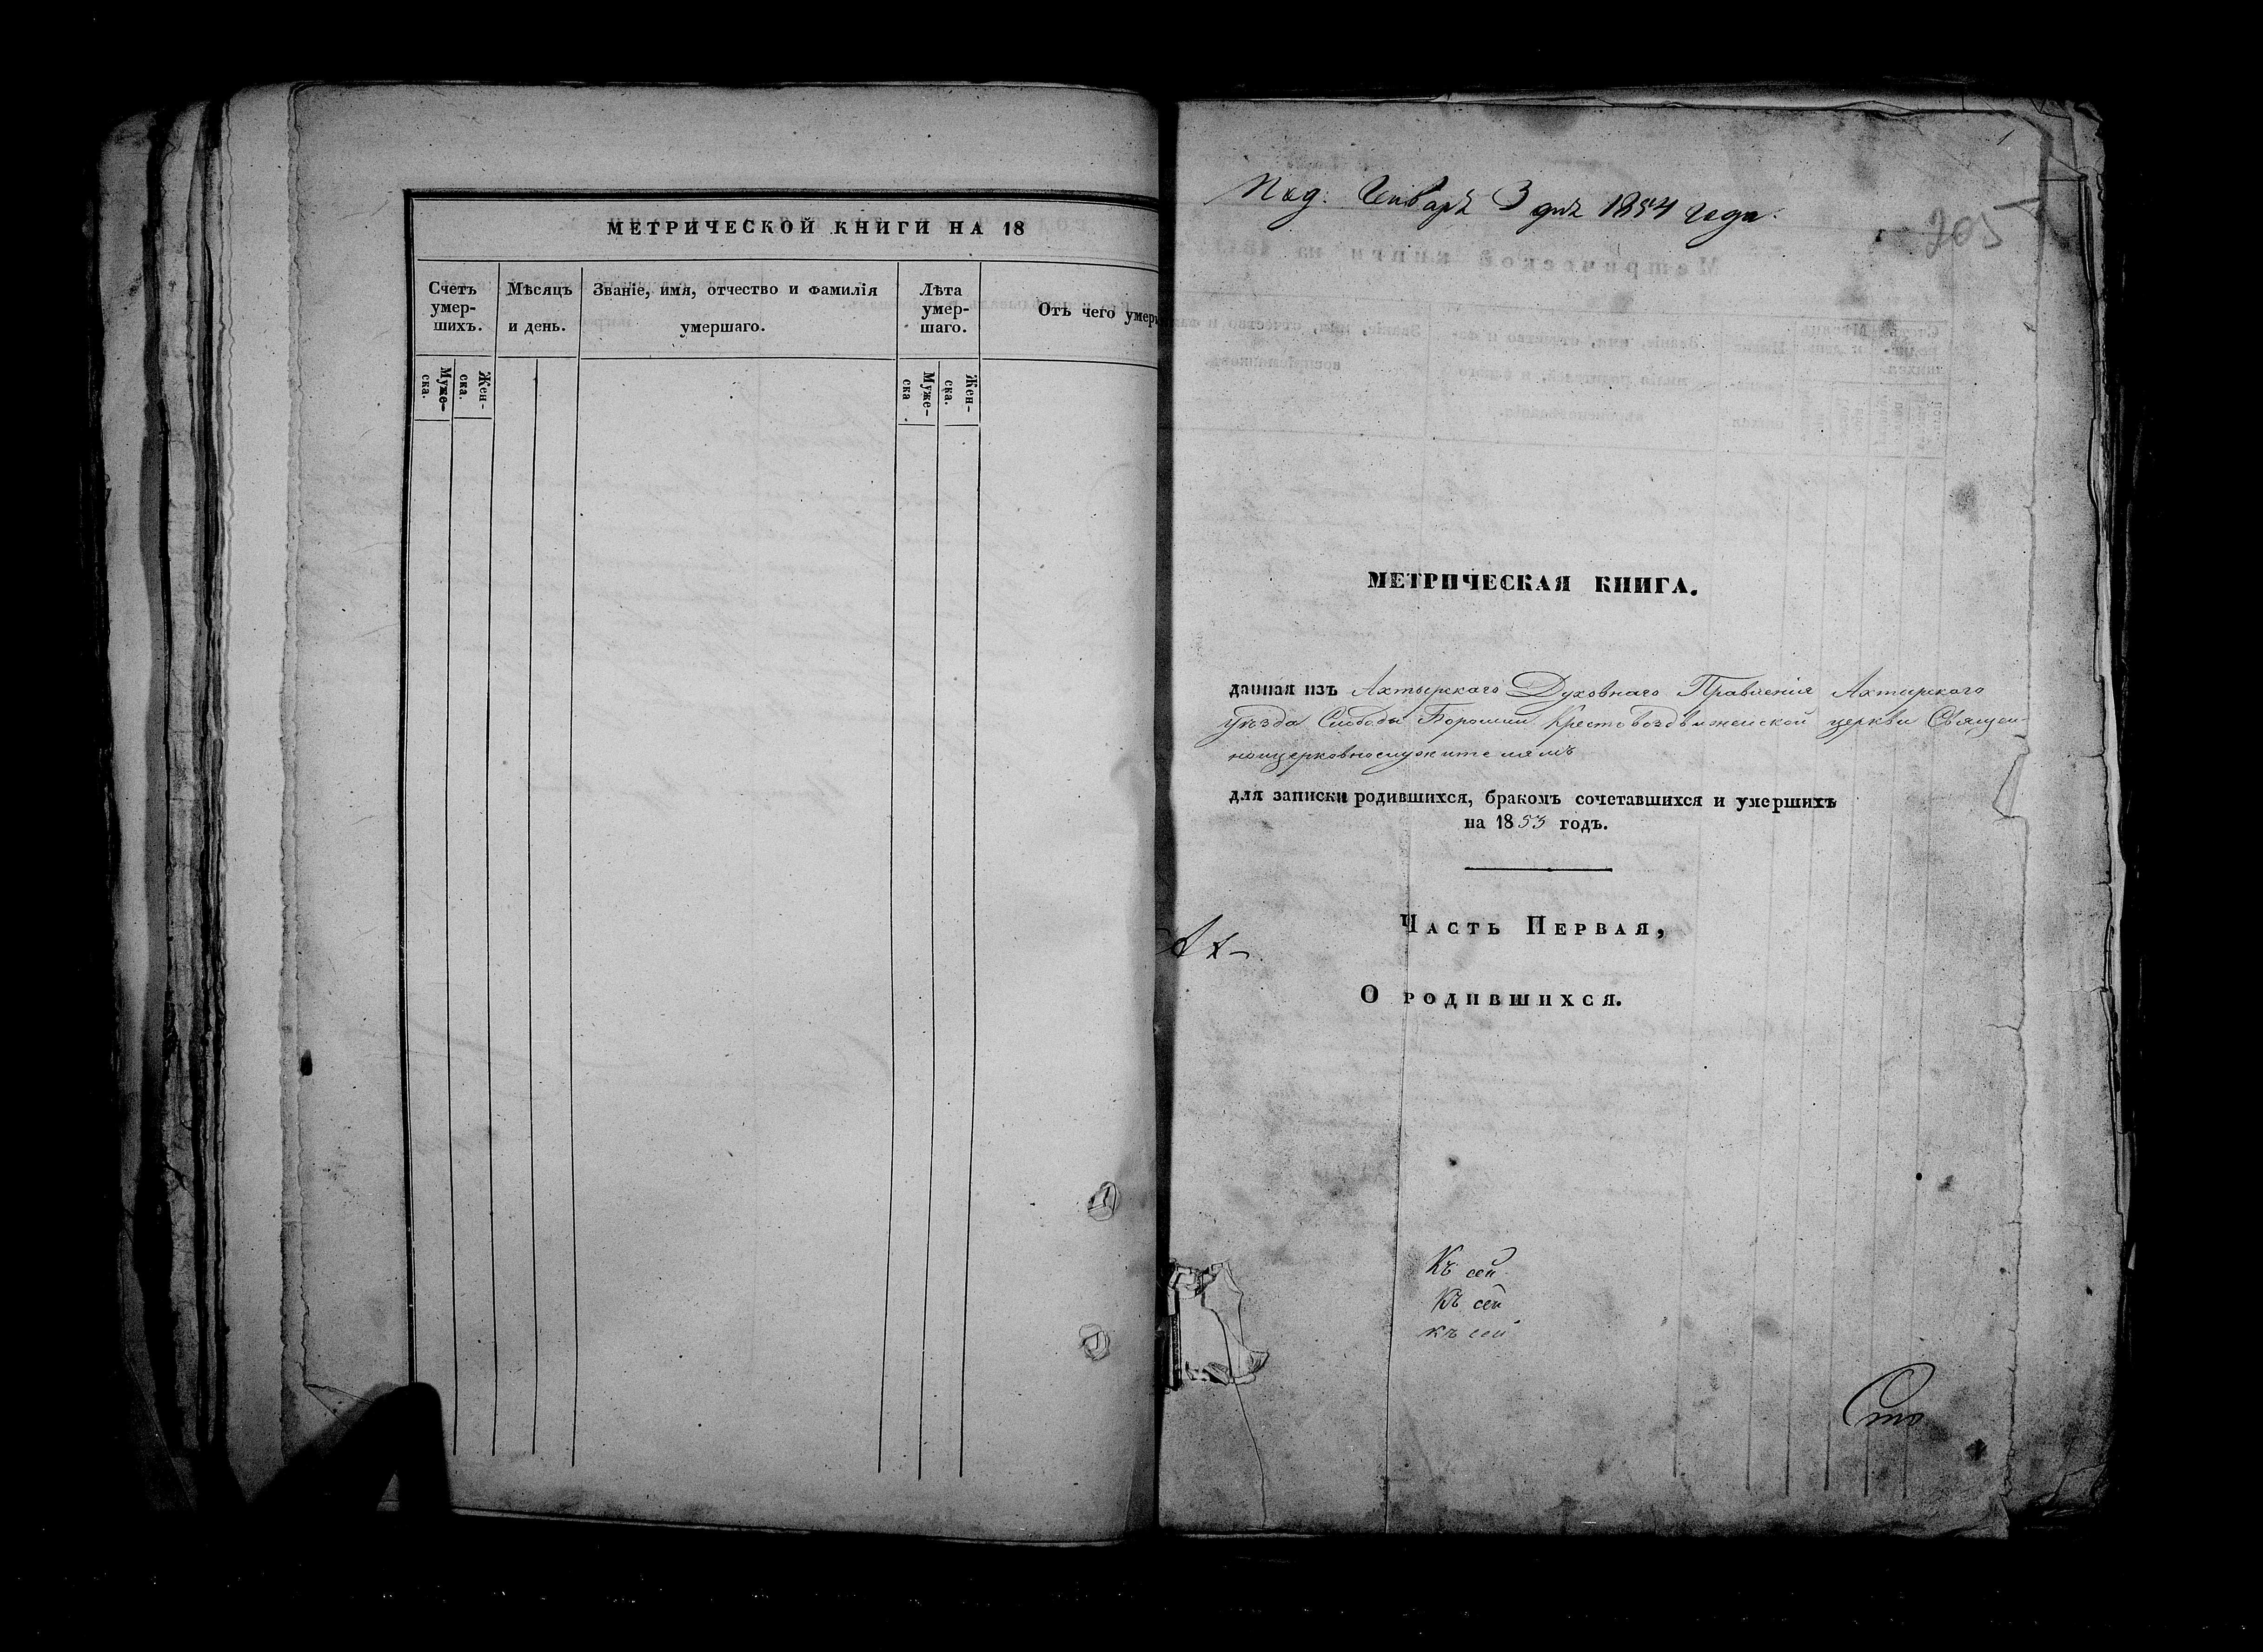 МЕТРИЧЕСКОЙ КНИГИ НА 18
Счетъ умер-шихъ.
Муже-ска.
Жен-ска.
Мѣсяцъ и день.
Званіе, имя, отчество и фамилія умершаго.
Лѣта умер-шаго.
Муже-ска
Жен-ска.
Отъ чего умер
1
Под. Генваря 3 дня 1854 года.
205
МЕТРИЧЕСКАЯ КНИГА.
данная изъ Ахтырскаго Духовнаго Правленія Ахтырскаго
уѣзда Слободы Боромли Крестовоздвиженской церкви Священ-
ноцерковнослужителямъ
для записки родившихся, бракомъ сочетавшихся и умершихъ
на 1853 годъ.
Часть Первая,
Ах-
О родившихся.
Къ сей
Къ сей
къ сей
Сто